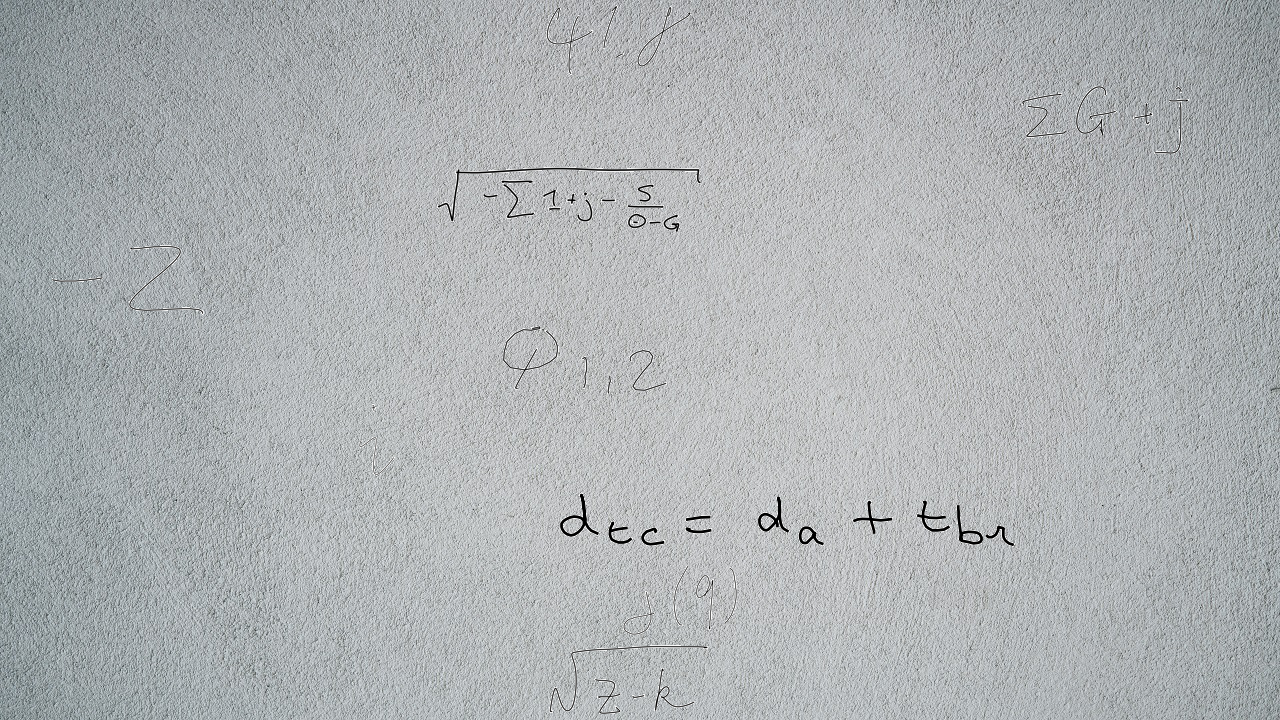 41.8
ΣG+j
√(-Σ1+j-S/(⊙-G))
-Z
φ1,2
i
d_tc = d_a + t_br
j(9)
√(z-k)